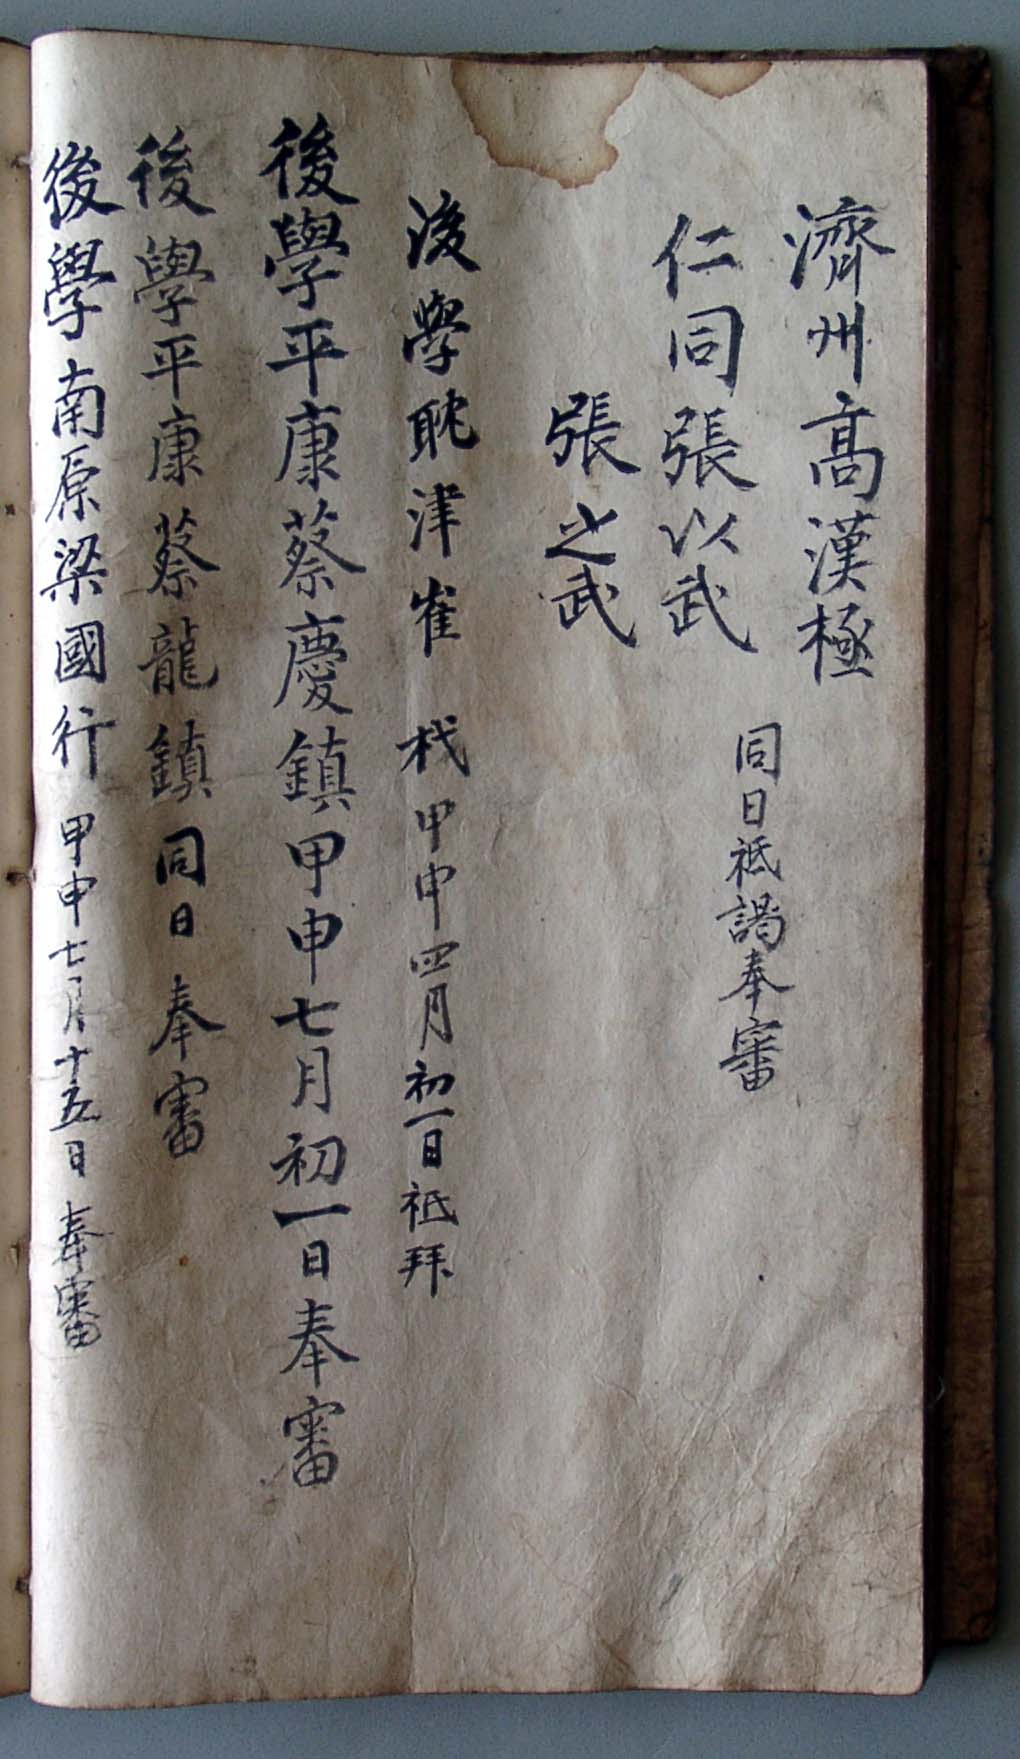 濟州高漢極
仁同張以武
同日祗謁奉審
張之武
後學耽津崔栈甲申四月初一日祗拜
後學平康蔡慶鎮甲申七月初一日奉審
後學平康蔡龍鎮同日奉審
後學南原梁國行甲申七月十五日奉審